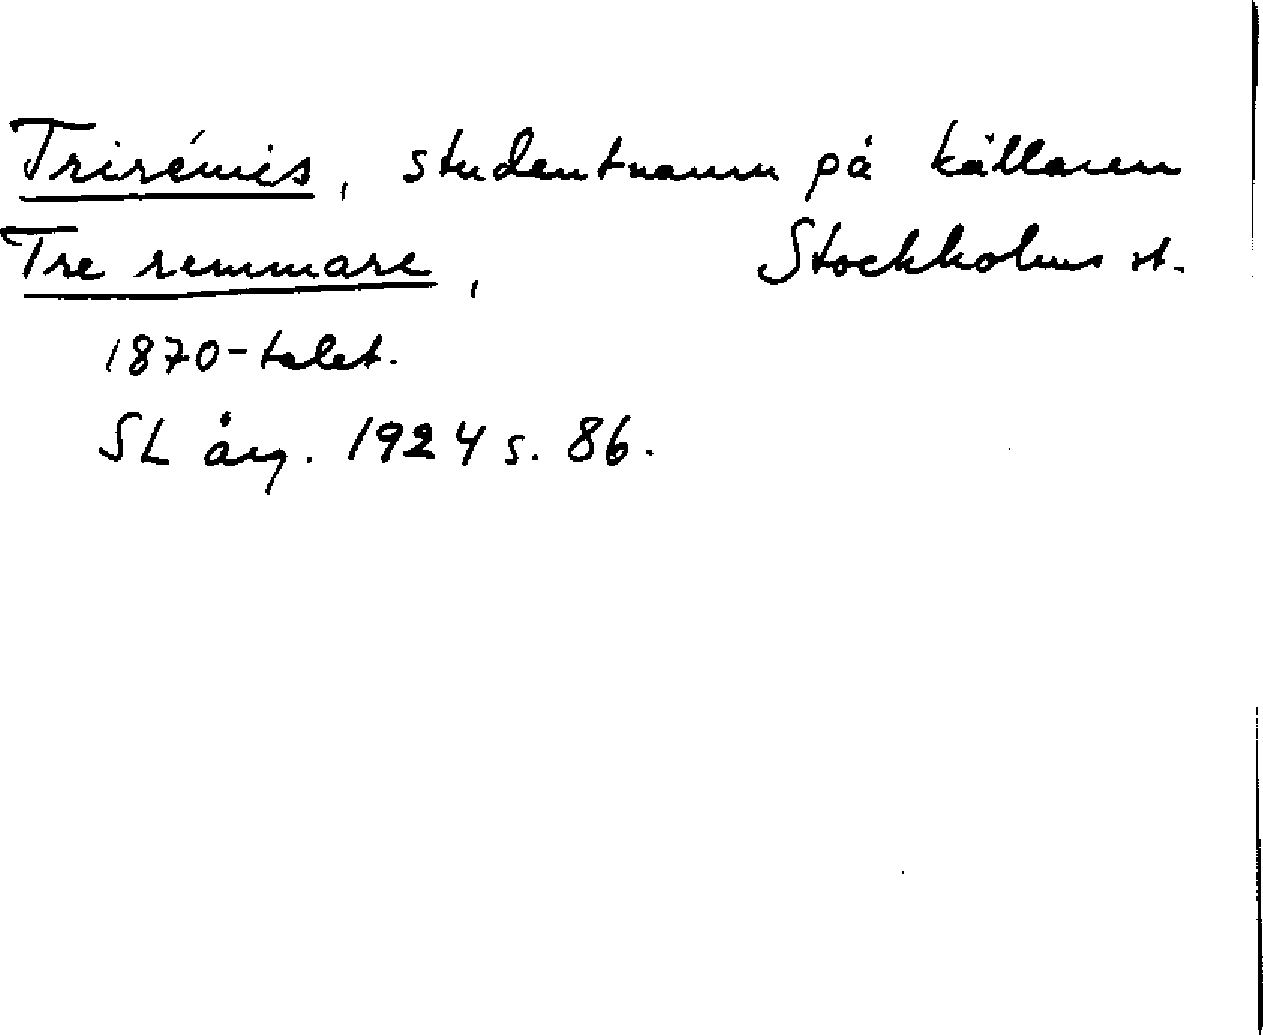 Trirémis, studentnamn på källaren
Tre remmare, Stockholms st.
1870-talet.
SL årg. 1924 s. 86.